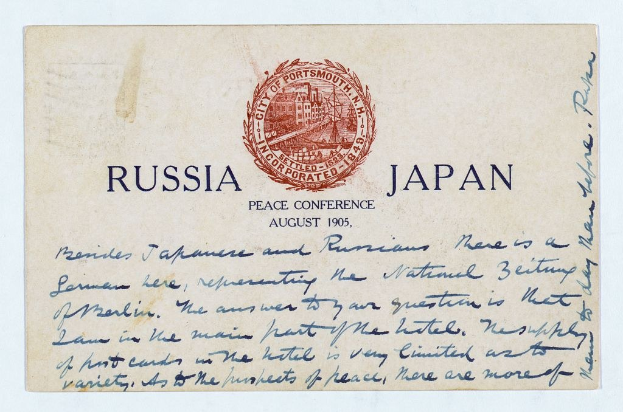 CITY OF PORTSMOUTH, N.H.
SETTLED-1623
INCORPORATED-1849
RUSSIA JAPAN
PEACE CONFERENCE
AUGUST 1905.
Besides Japanese and Russians there is a
German here, representing the National Zeitung
of Berlin. The answer to your question is that
I am in the main part of the hotel. The supply
of post cards in the hotel is very limited as to
variety. As to the prospects of peace, there are more of
them to day than before.